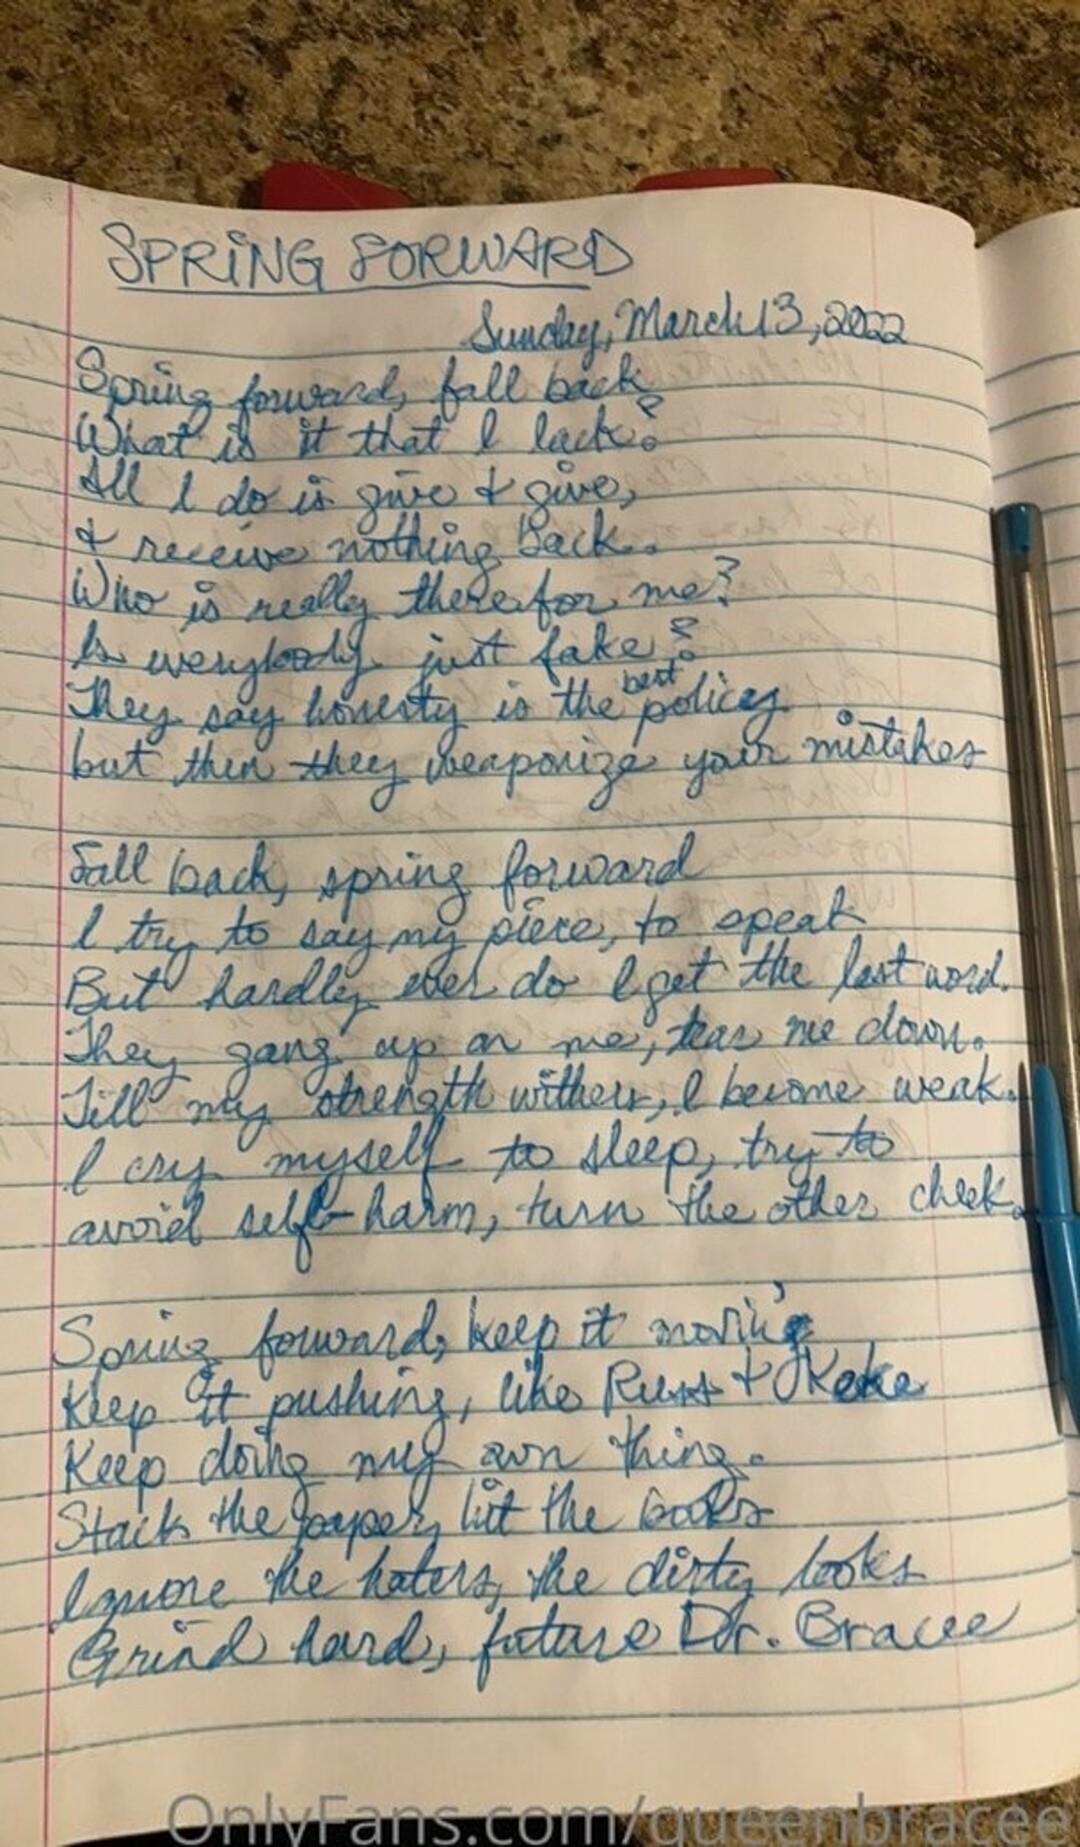 SPRING FORWARD
Sunday, March 13, 2022
Spring forward, fall back
What is it that I lack?
All I do is give & give,
& receive nothing back.
Who is really there for me?
Is everybody just fake?
They say honesty is the best policy
but then they weaponize your mistakes
Fall back, spring forward
I try to say my piece, to speak
But hardly ever do I get the last word.
They gang up on me, tear me down.
Till my strength withers, I become weak.
I cry myself to sleep, try to
avoid self-harm, turn the other cheek.
Spring forward, keep it movin'
Keep it pushing, like Russ & Keke
Keep doing my own thing.
Stack the paper, hit the books
Ignore the haters, the dirty looks
Grind hard, future Dr. Bracee
OnlyFans.com/queenbracee